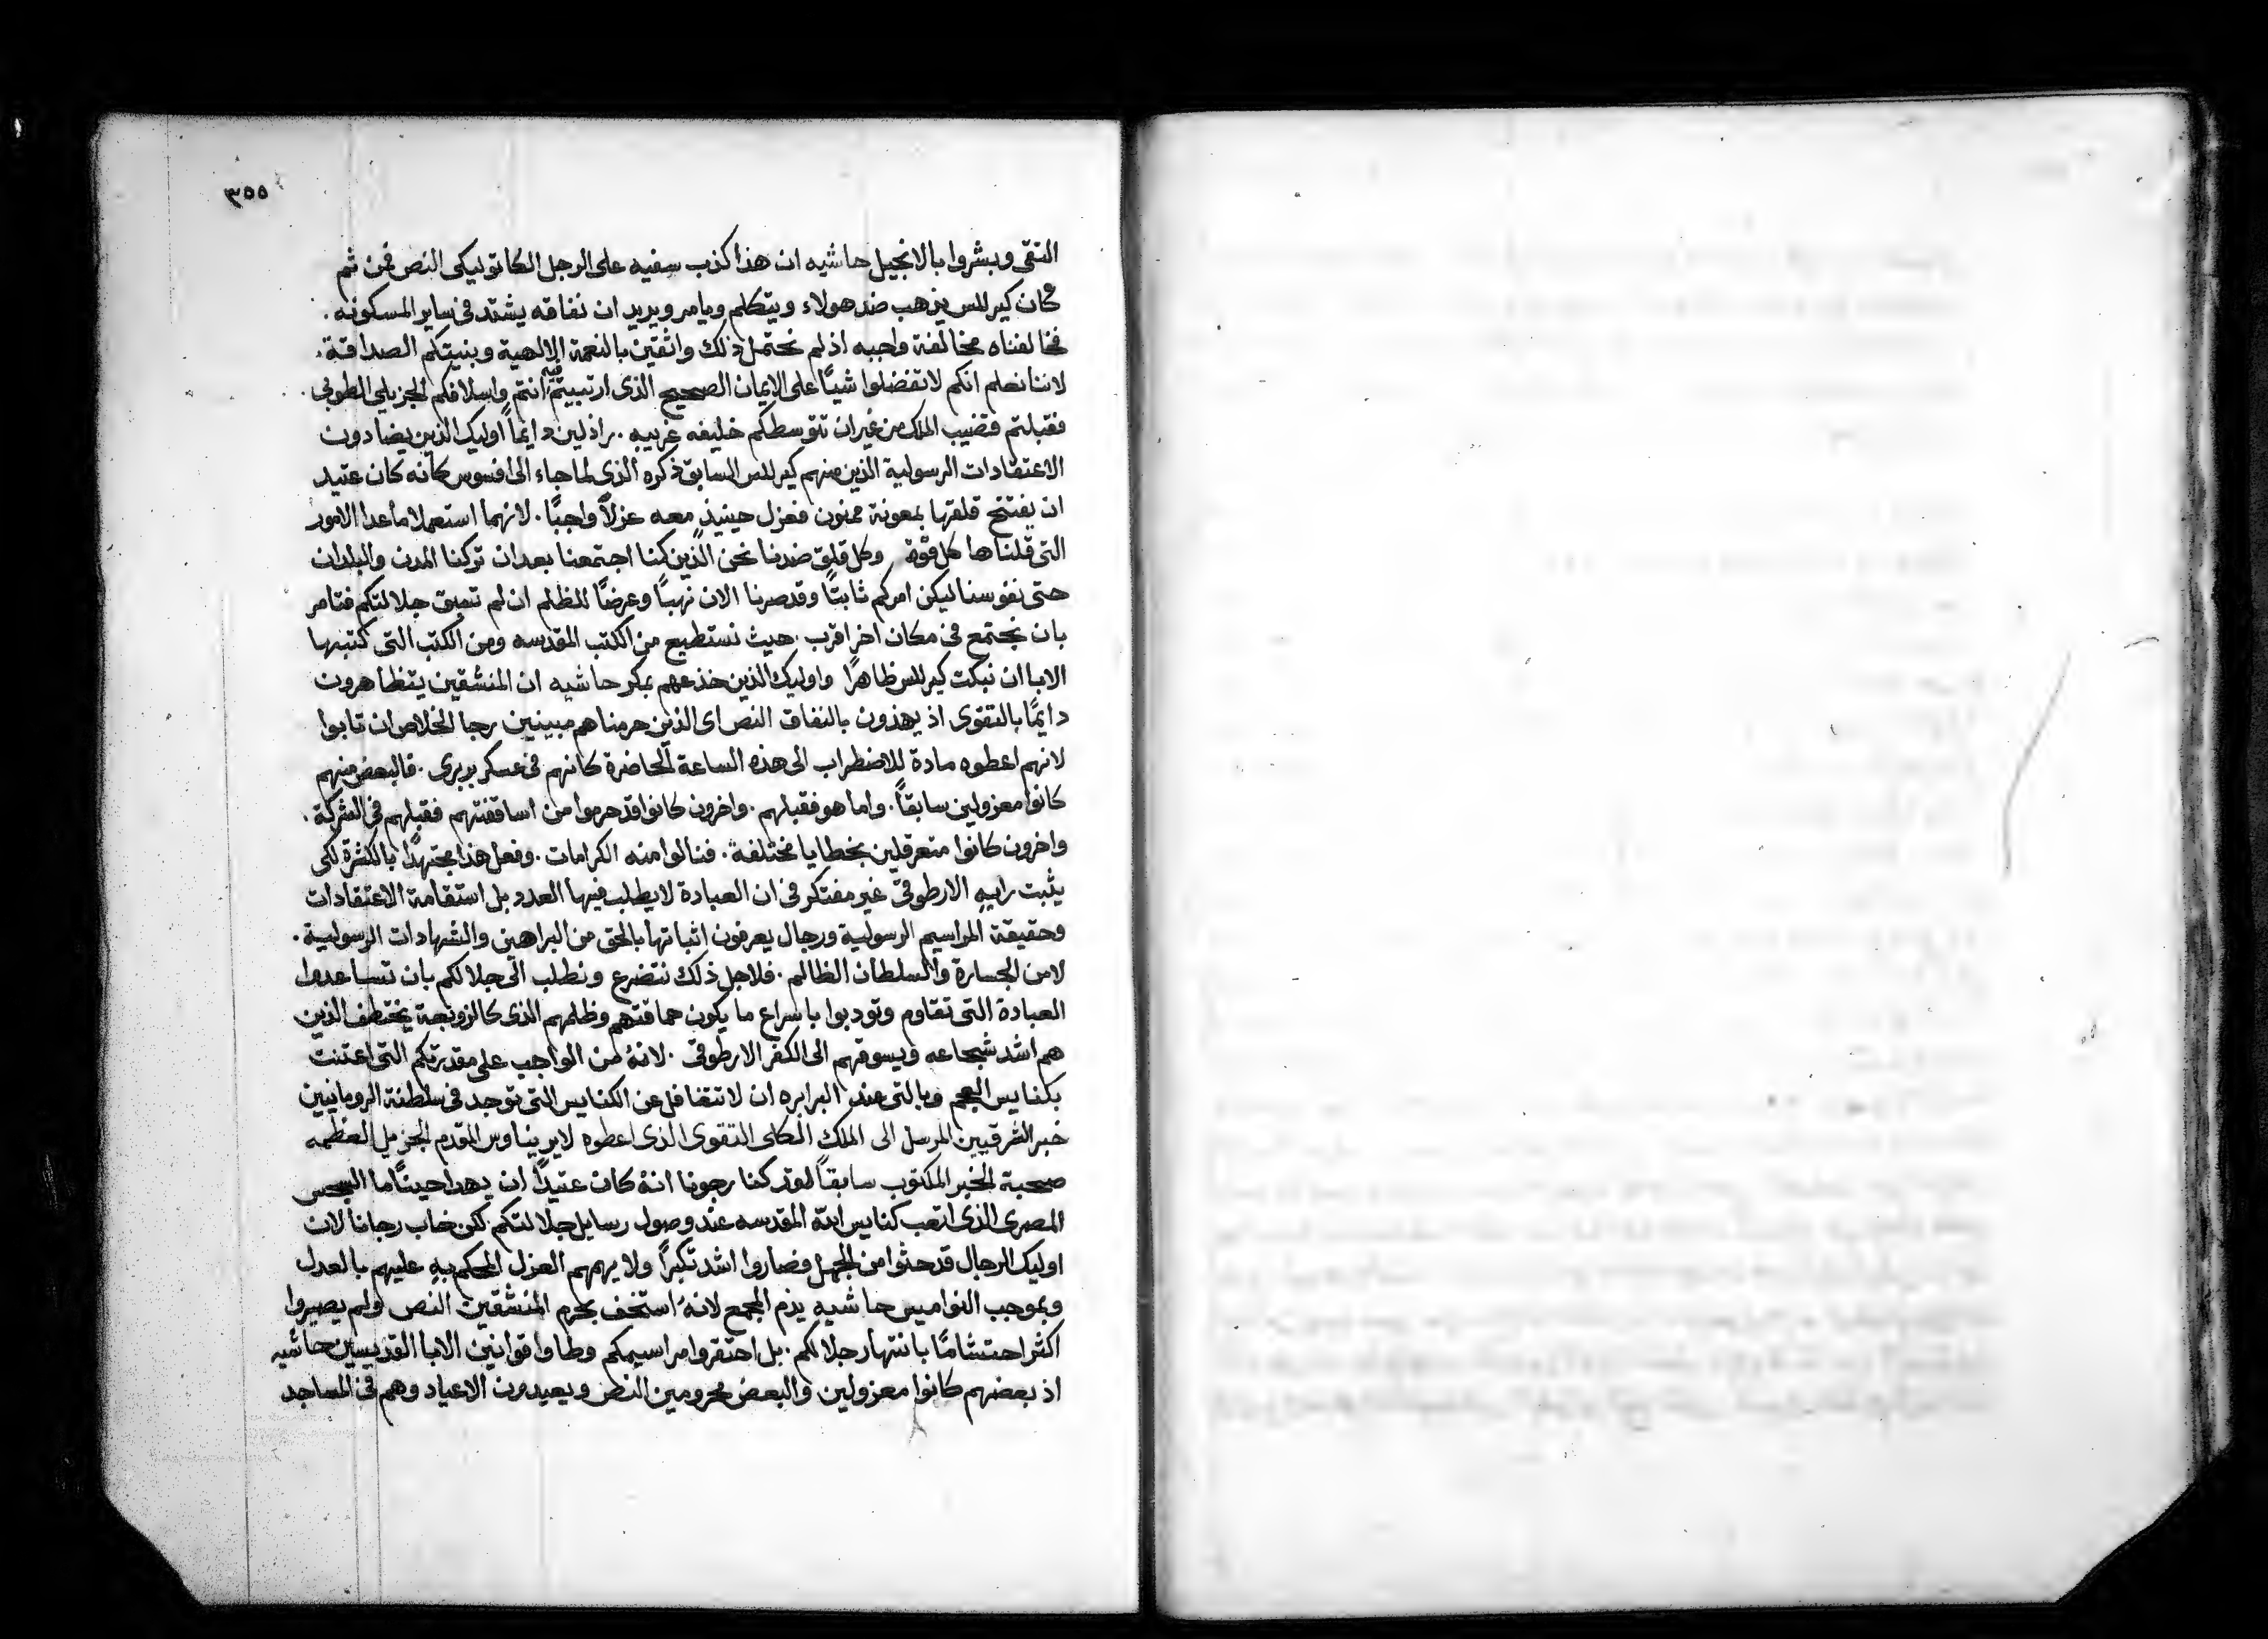 ٣٥٥
التقى وبشروا بالانجيل حاشيه ان هذا كذب سفيه على الرجل الكاتوليكى النص فمن ثم
كان كيرللس يذهب ضد هولاء ويتكلم ويامر ويريد ان نفاقه يشتد فى ساير المسكونه .
فخالفناه مخالفة واجبه اذ لم نحتمل ذلك واثقين بالنعمة الالهية وبنيتكم الصداقة .
لاننا نعلم انكم لا تفضلوا شيًا على الايمان الصحيح الذى ارتبيتم فيه انتم واسلافكم الجزيلى الطوبى .
فقبلتم قضيب الملك من غير ان تتوسطكم خليفه غريبه . راذلين دايمًا اوليك الذين يضادون
الاعتقادات الرسولية الذين منهم كيرللس السابق ذكره الذى لما جاء الى افسوس كانه كان عتيد
ان يفتتح قلعتها بمعونة ممنون فعزل حينيذٍ معه عزلاً واجبًا . لانهما استعملا ما عدا الامور
التى قلناها كل قوة وكل قلق ضدنا نحن الذين كنا اجتمعنا بعد ان تركنا المدن والبلدان
حتى نفوسنا ليكن امركم ثابتًا وقد صرنا الان نهبًا وعرضًا للظلم ان لم تسبق جلالتكم فتامر
بان نجتمع فى مكان اخر اقرب . حيث نستطيع من الكتب المقدسه ومن الكتب التى كتبها
الابا ان نبكت كيرللس ظاهرًا واوليك الذين خدعهم بمكر حاشيه ان المنشقين يتظاهرون
دايمًا بالتقوى اذ يهذون بالنفاق النص اى الذين حرمناهم مبينين رجا الخلاص ان تابوا
لانهم اعطوه مادة للاضطراب الى هذه الساعة الحاضرة كانهم فى عسكر بربرى . فالبعض منهم
كانوا معزولين سابقاً . واما هو فقبلهم . واخرون كانوا قد حرموا من اساقفتهم فقبلهم فى الشركة .
واخرون كانوا متعرقلين بخطايا مختلفة . فنالوا منه الكرامات . وفعل هذا مجتهدًا بالكثرة لكى
يثبت رايه الارطوقى غير مفتكر فى ان العبادة لا يطلب فيها العدد بل استقامة الاعتقادات
وحقيقة المراسيم الرسولية ورجال يعرفون اثباتها بالحق من البراهين والشهادات الرسولية .
لا من الجسارة والسلطان الظالم . فلاجل ذلك نتضرع ونطلب الى جلالكم بان تساعدوا
العبادة التى تقاوم وتودبوا باسراع ما يكون حماقتهم وظلمهم الذى كالزوبعة يختطف الذين
هم اشد شجاعه ويسوقهم الى الكفر الارطوقى . لانهُ من الواجب على مقدرتكم التى اعتنت
بكنايس العجم وبالتى عند البرابره ان لا تتغافل عن الكنايس التى توجد فى سلطنة الرومانيين
خبر الشرقيين المرسل الى الملك الكلى التقوى الذى اعطوه لايريناوس المقدم الجزيل العظمه
صحبة الخبر المكتوب سابقاً لقد كنا رجونا انهُ كان عتيدًا ان يهدا حينًا ما السجس
المصرى الذى اتعب كنايس الله المقدسه عند وصول رسايل جلالتكم لكن خاب رجانا لان
اوليك الرجال قد حثوا من الجهل فصاروا اشد تكبرًا ولا يهمهم العزل المحكم به عليهم بالعدل
وبموجب النواميس حاشيه يذم المجمع لانهُ استخف بحرم المنشقين النص ولم يصيروا
اكثر احتشامًا بانتهار جلالكم . بل احتقروا مراسيمكم وطاوا قوانين الابا القديسين حاشيه
اذ بعضهم كانوا معزولين والبعض محرومين النص ويعيدون الاعياد وهم فى المساجد